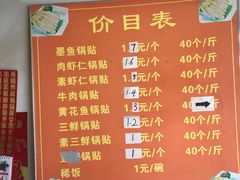 价目表
墨鱼锅贴 1.7元/个 40个/斤
肉虾仁锅贴 1.6元/个 40个/斤
素虾仁锅贴 1.5元/个 40个/斤
牛肉锅贴 1.4元/个 40个/斤
黄花鱼锅贴 1.3元/个
三鲜锅贴 1.2元/个 40个/斤
素三鲜锅贴 1元/个 40个/斤
锅贴 1元/个 40个/斤
稀饭 1元/碗